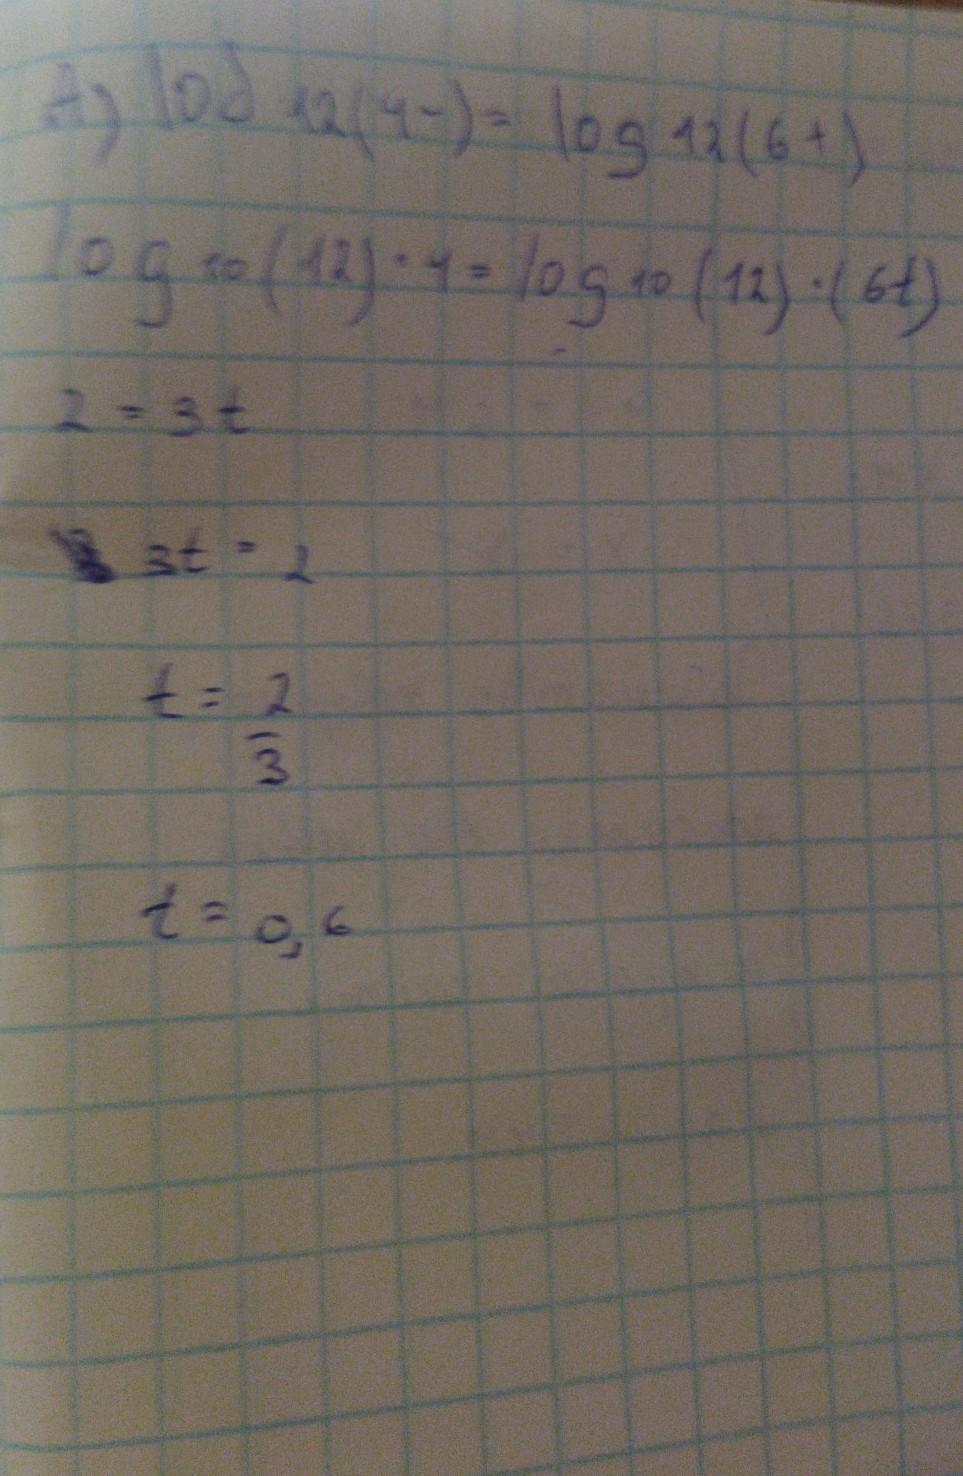 A) lod 12(4-) = log 12(6+)
log 10 (12) · 4 = log 10 (12) · (6t)
2 = 3t
3t = 2
t = 2
3
t = 0,6